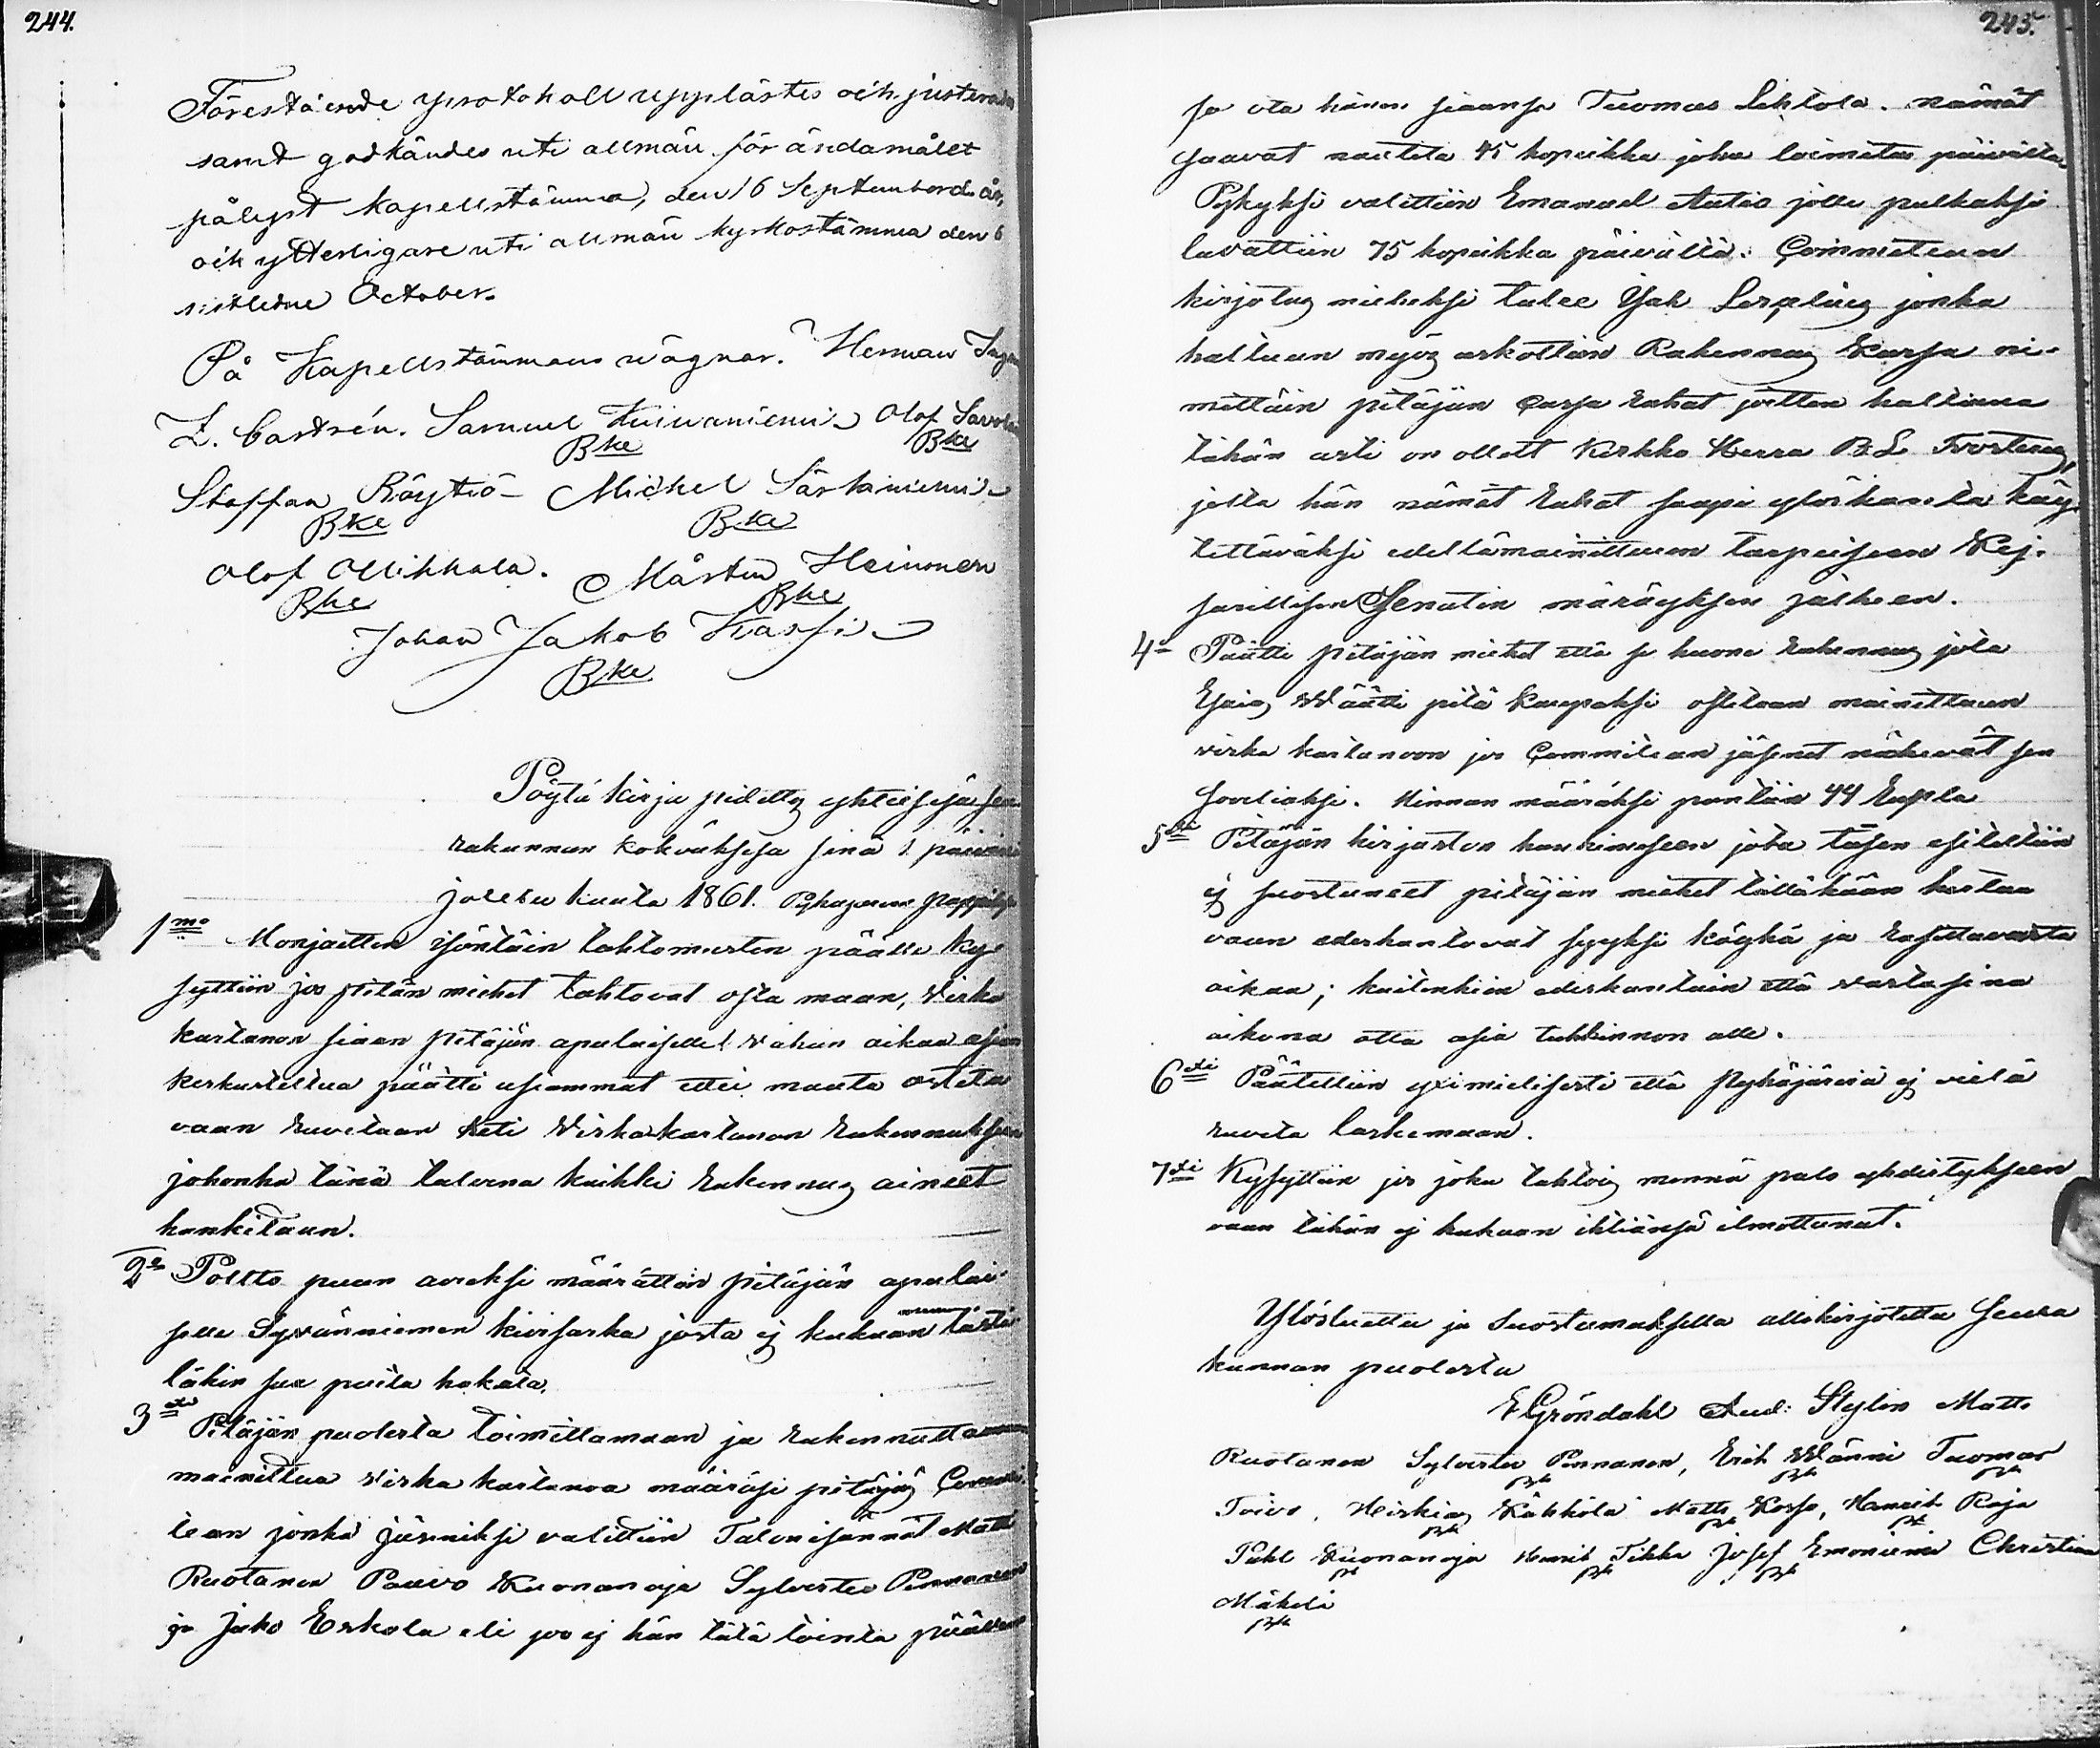 244.
Förestående protokoll upplästes och justerades
samt godkändes uti allmän för ändamålet
pålyst kapellstämma, den 16 September d. år,
och ytterligare uti allmän kyrkostämma den 6
sistledne October.
På Kapellstämmans vägnar. Herman
Z. Castrén. Samuel Kuiwaniemi Olof
Bke Bke
Staffan Röytiö Michel Särkiniemi
Bke Bke
Olof Mikkala. Mårten Heinonen
Bke Bke
Johan Jakob Kassi
Bke
Pöytä kirja pidetty yhteisesä seu
rakunnan kokouksesa sinä 1 päivänä
joulu kuuta 1861. Pyhajarven pappilasa
1mo Monjaitten isäntäin tahtomusten päälle ky
syttiin jos pitän miehet tahtovat osta maan, virka
kartanon siaan pitäjän apulaiselle! vähän aikaa asian
keskusteltua päätti usiammat ettei maata osteta
vaan ruvetaan heti Virkakartanon rakennukseen
johonka tänä talvena kaikki rakennus aineet
hankitaan.
2o Poltto puun avuksi määrättiin pitäjän apulai
selle Syvänniemen kivisarka josta ej kukaan tästä
lähin saa puita hakata.
3tio Pitäjän puolesta toimittamaan ja rakennuttamaan
mainittua virka kartanoa määräsi pitäjäs Commi
tean jonka jäseniksi valittiin Talonisännät Matti
Ruotanen Paavo Kuonanoja Sylvester Pennanen
ja Jako Eskola eli jos ej hän tätä tointa päällensä
245.
se ota hänen siaansa Tuomas Lehtola. nämät
saavat nautita 45 kopeikka joka toimitus päivältä,
Pykyksi valittiin Emanuel Autio jolle palkaksi
luvattiin 75 kopeikka päivältä: Commitean
kirjotus mieheksi tulee Isak Serpling jonka
haltuun myös uskottiin Rakennus Kassa ni-
mittäin pitäjän Cassa rahat joitten haltiana
tähän asti on ollut Kirkko Herra B. L. Frosterus,
jolta hän nämät rahat saapi ylöskantaa käy-
tettäväksi edellämainittuun tarpeiseen Kej-
sarillisen Senatin määräyksen jälkeen.
4o Päätti pitäjän miehet että se huone rakennus jota
Esaias Määtti pitä kaupaksi ostetaan mainittuun
virka kartanoon jos Commitean jäsenet näkevät sen
soveliaksi. Hinnan määräksi pantiin 44 Rupla
5to Pitäjän kirjaston hankimiseen joka täsen esiteltiin
ej suostuneet pitäjän miehet tälläkään kertaa
vaan edeskantovat syyksi köyhä ja rasittavaista
aikaa; kuitenkin edeskantain että vastasina
aikona otta asia tutkinnon alle.
6to Päätettiin yximielisesti että Pyhäjärviä ej vielä
ruveta laskemaan.
7to Kysyttiin jos joku tahtois mennä palo yhdistykseen
vaan tähän ej kukaan ihtiänsä ilmottanut.
Ylösluettu ja suostumuksella allekirjotettu seura
kunnan puolesta
E Gröndahl And: Stylin Matts
Ruotanen Sylvester Pennanen, Erik Männi Tuomas
Toivo, Heikias Kähkölä Matts Kosso, Hanrik Raja
Pahl Kuonanoja Henrik Tikka Josef Emoniemi Christian
Mäkelä